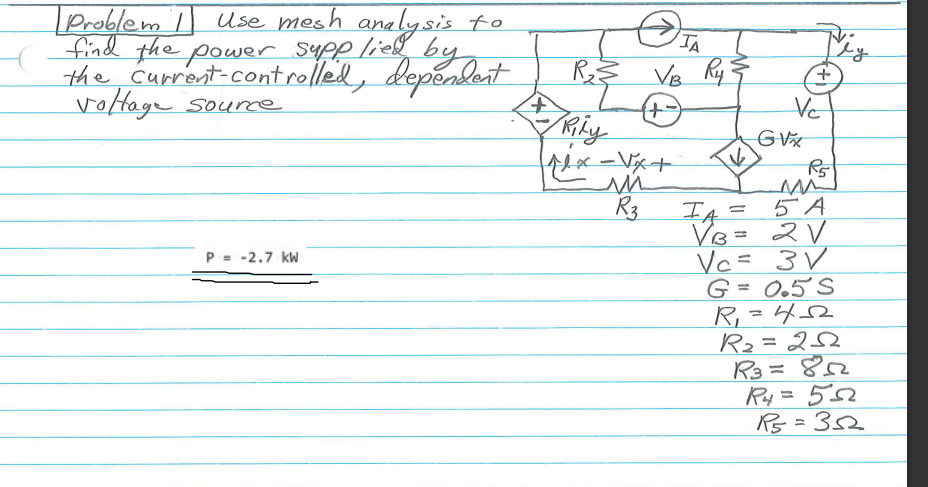 Problem 1 Use mesh analysis to
find the power supplied by
the current-controlled, dependent
voltage source
IA
iy
R2
VB
R4
+
+
+ -
Vc
-
R1iy
GVx
ix - Vx +
R5
R3
IA = 5 A
VB = 2 V
P = -2.7 kW
Vc = 3 V
G = 0.5 S
R1 = 4 Ω
R2 = 2 Ω
R3 = 8 Ω
R4 = 5 Ω
R5 = 3 Ω